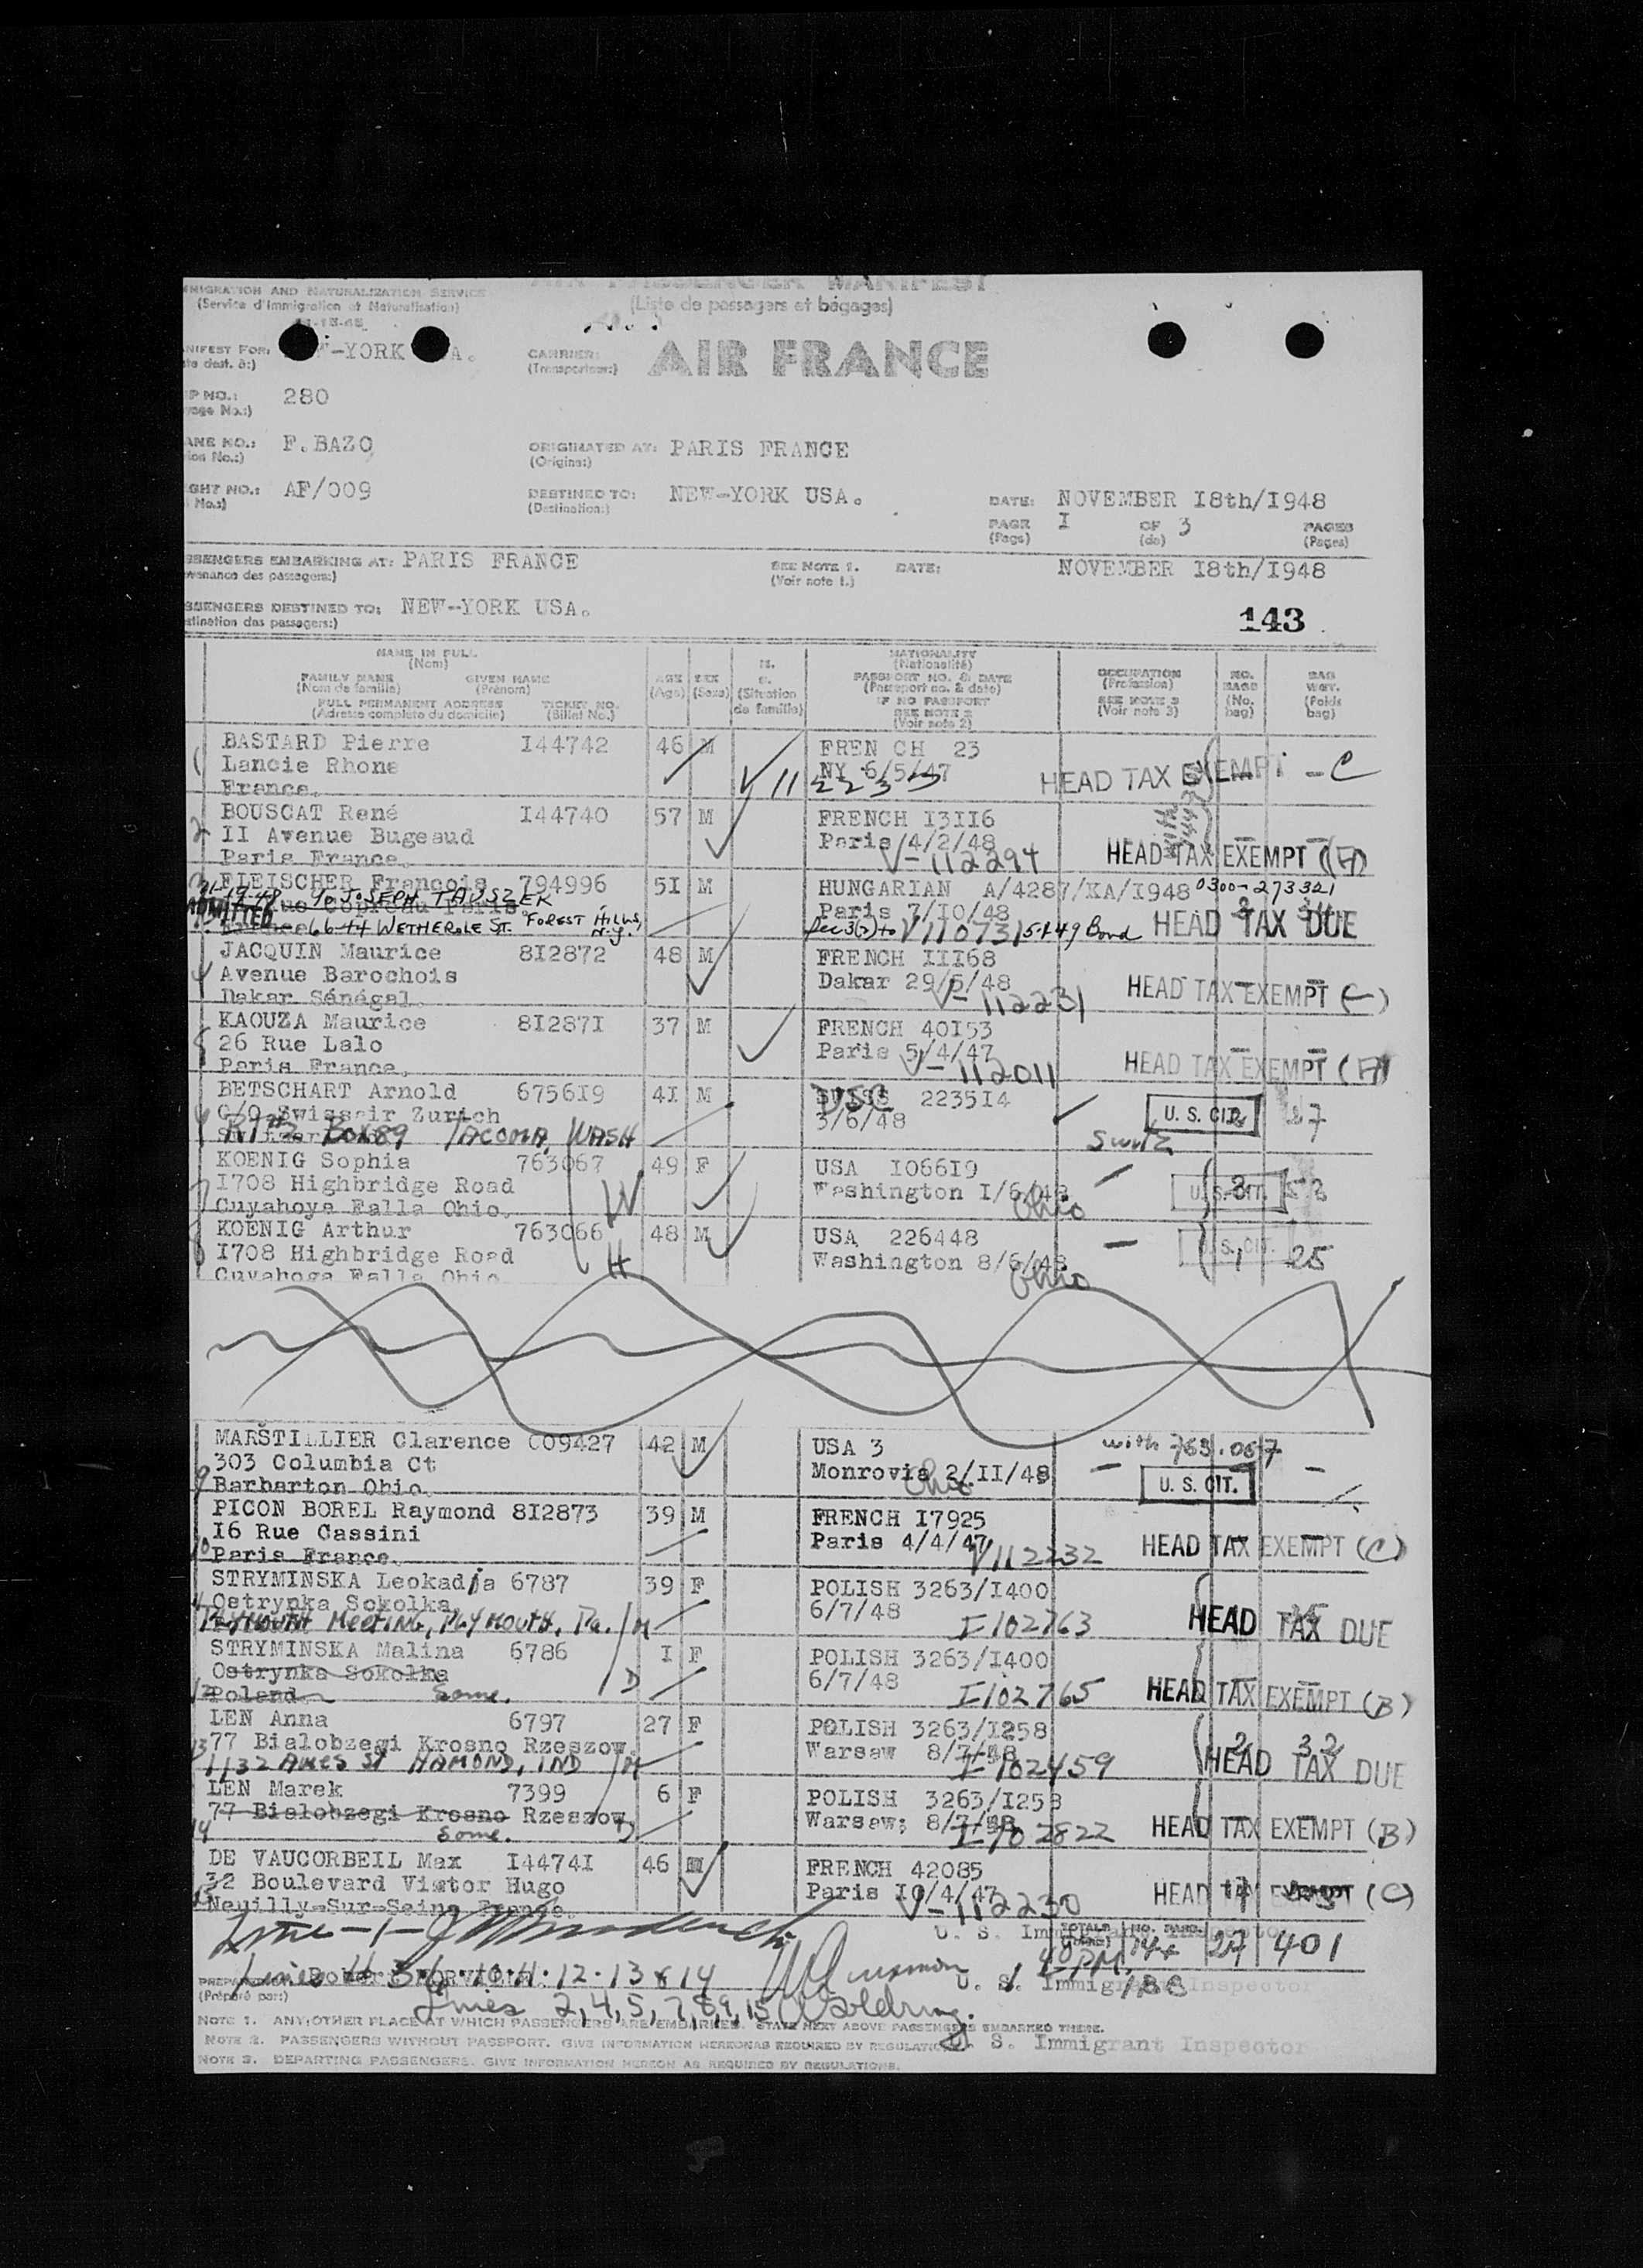 AIR PASSENGER MANIFEST
(Liste de passagers et bagages)
MIGRATION AND NATURALIZATION SERVICE
(Service d'Immigration et Naturalisation)
NIFEST FOR: -YORK A.
CARRIER: AIR FRANCE
(Transporteur:)
IP NO.: 280
ANE NO.: F.BAZO
ORIGINATED AT: PARIS FRANCE
(Origine:)
GHT NO.: AF/009
DESTINED TO: NEW-YORK USA.
(Destination:)
DATE: NOVEMBER I8th/I948
PAGE I OF 3 PAGES
(Page) (de) (Pages)
SSENGERS EMBARKING AT: PARIS FRANCE SEE NOTE 1. DATE: NOVEMBER I8th/I948
venance des passagers:) (Voir note 1.)
SSENGERS DESTINED TO: NEW-YORK USA.
stination des passagers:)
143
NAME IN FULL
(Nom)
FAMILY NAME GIVEN NAME
(Nom de famille) (Prénom)
FULL PERMANENT ADDRESS TICKET NO.
(Adresse complete du domicile) (Billet No.)
AGE SEX
(Age) (Sexe) (Situation de famille)
NATIONALITY
(Nationalité)
PASSPORT NO. & DATE
(Passeport no. & date)
IF NO PASSPORT
SEE NOTE 2
(Voir note 2)
OCCUPATION
(Profession)
SEE NOTE 3
(Voir note 3)
NO. BAGS
(No. bag)
BAG WGT.
(Poids bag)
BASTARD Pierre I44742 46 M FREN CH 23
Lancie Rhone NY 6/5/47 HEAD TAX EXEMPT - C
France. V 11 2233
BOUSCAT René I44740 57 M FRENCH I3II6
2 II Avenue Bugeaud Paris /4/2/48
Paris France. V-112294 HEAD TAX EXEMPT (A)
FLEISCHER François 794996 5I M HUNGARIAN A/4287/KA/I948 0300-273321
11-19-48 % JOSEPH TAUSZEK Paris 7/I0/48 HEAD TAX DUE
ADMITTED 6644 WETHEROLE ST. FOREST HILLS, N.Y. V110731 Bond
JACQUIN Maurice 8I2872 48 M FRENCH III68
4 Avenue Barochois Dakar 29/5/48
Dakar Sénégal. V-112231 HEAD TAX EXEMPT (C)
KAOUZA Maurice 8I287I 37 M FRENCH 40I53
5 26 Rue Lalo Paris 5/4/47
Paris France. V-112011 HEAD TAX EXEMPT (A)
BETSCHART Arnold 6756I9 4I M USC 2235I4
C/O Swissair Zurich 3/6/48 U. S. CIT. 27
RT #2 Box 89 TACOMA, WASH
KOENIG Sophia 763067 49 F USA I066I9
I708 Highbridge Road Washington I/6/48 U. S. CIT.
7 Cuyahoye Falla Ohio. W Ohio
KOENIG Arthur 763066 48 M USA 226448
I708 Highbridge Road Washington 8/6/48 U. S. CIT. 1 25
Cuyahoga Falla Ohio H Ohio
MARSTILLIER Clarence 009427 42 M USA 3 with 763.067
303 Columbia Ct Monrovia 2/II/48 U. S. CIT.
9 Barbarton Ohio. Ohio
PICON BOREL Raymond 8I2873 39 M FRENCH I7925
I6 Rue Cassini Paris 4/4/47 HEAD TAX EXEMPT (C)
10 Paris France. V112232
STRYMINSKA Leokadja 6787 39 F POLISH 3263/I400
Ostrynka Sokolka 6/7/48 HEAD TAX DUE
PLYMOUTH MEETING, PLYMOUTH, Pa. M I-102763
STRYMINSKA Malina 6786 I F POLISH 3263/I400
Ostrynka Sokolka 6/7/48
12 Poland Same. D I-102765 HEAD TAX EXEMPT (B)
LEN Anna 6797 27 F POLISH 3263/I258
13 77 Bialobzegi Krosno Rzeszow. Warsaw 8/7/48 2 32
1132 AMES ST HAMOND, IND M I-102459 HEAD TAX DUE
LEN Marek 7399 6 F POLISH 3263/I258
77 Bialobzegi Krosno Rzeszow Warsaw; 8/7/48
14 Same. D I-102822 HEAD TAX EXEMPT (B)
DE VAUCORBEIL Max I4474I 46 M FRENCH 42085
32 Boulevard Vistor Hugo Paris I0/4/47 HEAD TAX EXEMPT (C)
15 Neuilly-Sur-Seine France. V-112230
U. S. Immigrant Inspector
TOTALS 27 401
Line -1-
Lines 3·6·10·11·12·13 & 14
PREPARED BY:
(Préparé par:)
U. S. Immigrant Inspector
Lines 2,4,5,7,8,9,15 Goldring
U. S. Immigrant Inspector
NOTE 1. ANY OTHER PLACE AT WHICH PASSENGERS ARE EMBARKED. STATE NEXT ABOVE PASSENGERS EMBARKED THERE.
NOTE 2. PASSENGERS WITHOUT PASSPORT. GIVE INFORMATION HEREON AS REQUIRED BY REGULATIONS.
NOTE 3. DEPARTING PASSENGERS. GIVE INFORMATION HEREON AS REQUIRED BY REGULATIONS.